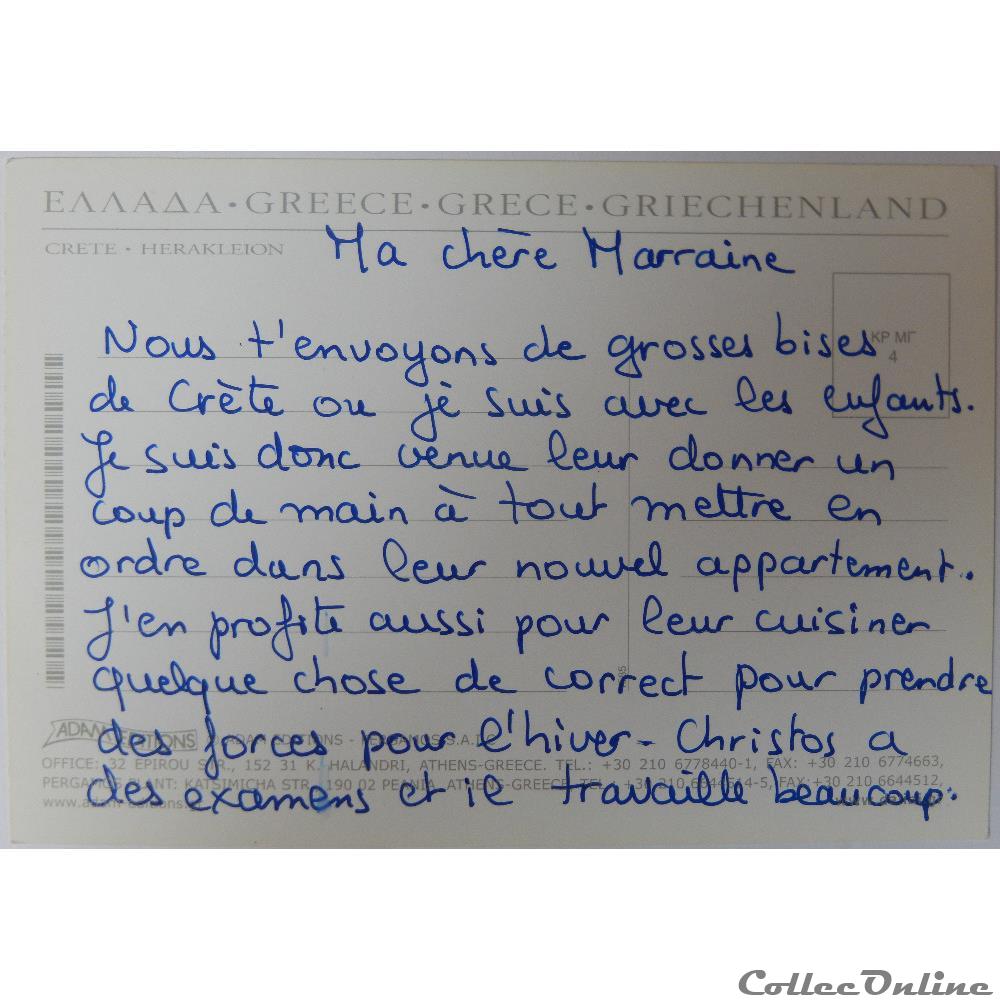 ΕΛΛΑΔΑ • GREECE • GRECE • GRIECHENLAND
CRETE • HERAKLEION
Ma chère Marraine
KP ΜΓ
4
Nous t'envoyons de grosses bises
de Crète ou je suis avec les enfants.
Je suis donc venue leur donner un
coup de main à tout mettre en
ordre dans leur nouvel appartement.
J'en profite aussi pour leur cuisiner
quelque chose de correct pour prendre
des forces pour l'hiver - Christos a
des examens et il travaille beaucoup.
ADAM EDITIONS © ADAM EDITIONS - PERGAMOS S.A.I.C.
OFFICE: 32 EPIROU STR., 152 31 K. HALANDRI, ATHENS-GREECE. TEL.: +30 210 6778440-1, FAX: +30 210 6774663,
PERGAMOS PLANT: KATSIMICHA STR., 190 02 PEANIA, ATHENS-GREECE. TEL. +30 210 FAX: +30 210 6644512,
CollecOnline